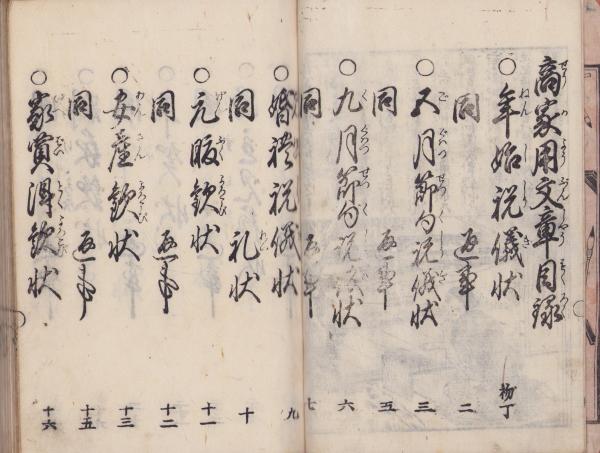 商家用文章目録
○年始祝儀状 初丁
同 返事 二
○五月節句祝儀状 三
同 返事 五
○九月節句祝儀状 六
同 返事 七
○婚礼祝儀状 九
同 礼状 十
○元服歓状 十一
同 返事 十二
○安産歓状 十三
同 返事 十五
○家買得歓状 十六